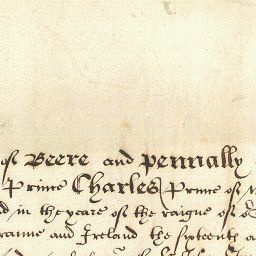 of Beere and Pennally
Prince Charles Prince of
in the yeare of the raigne of
and Ireland the sixteenth